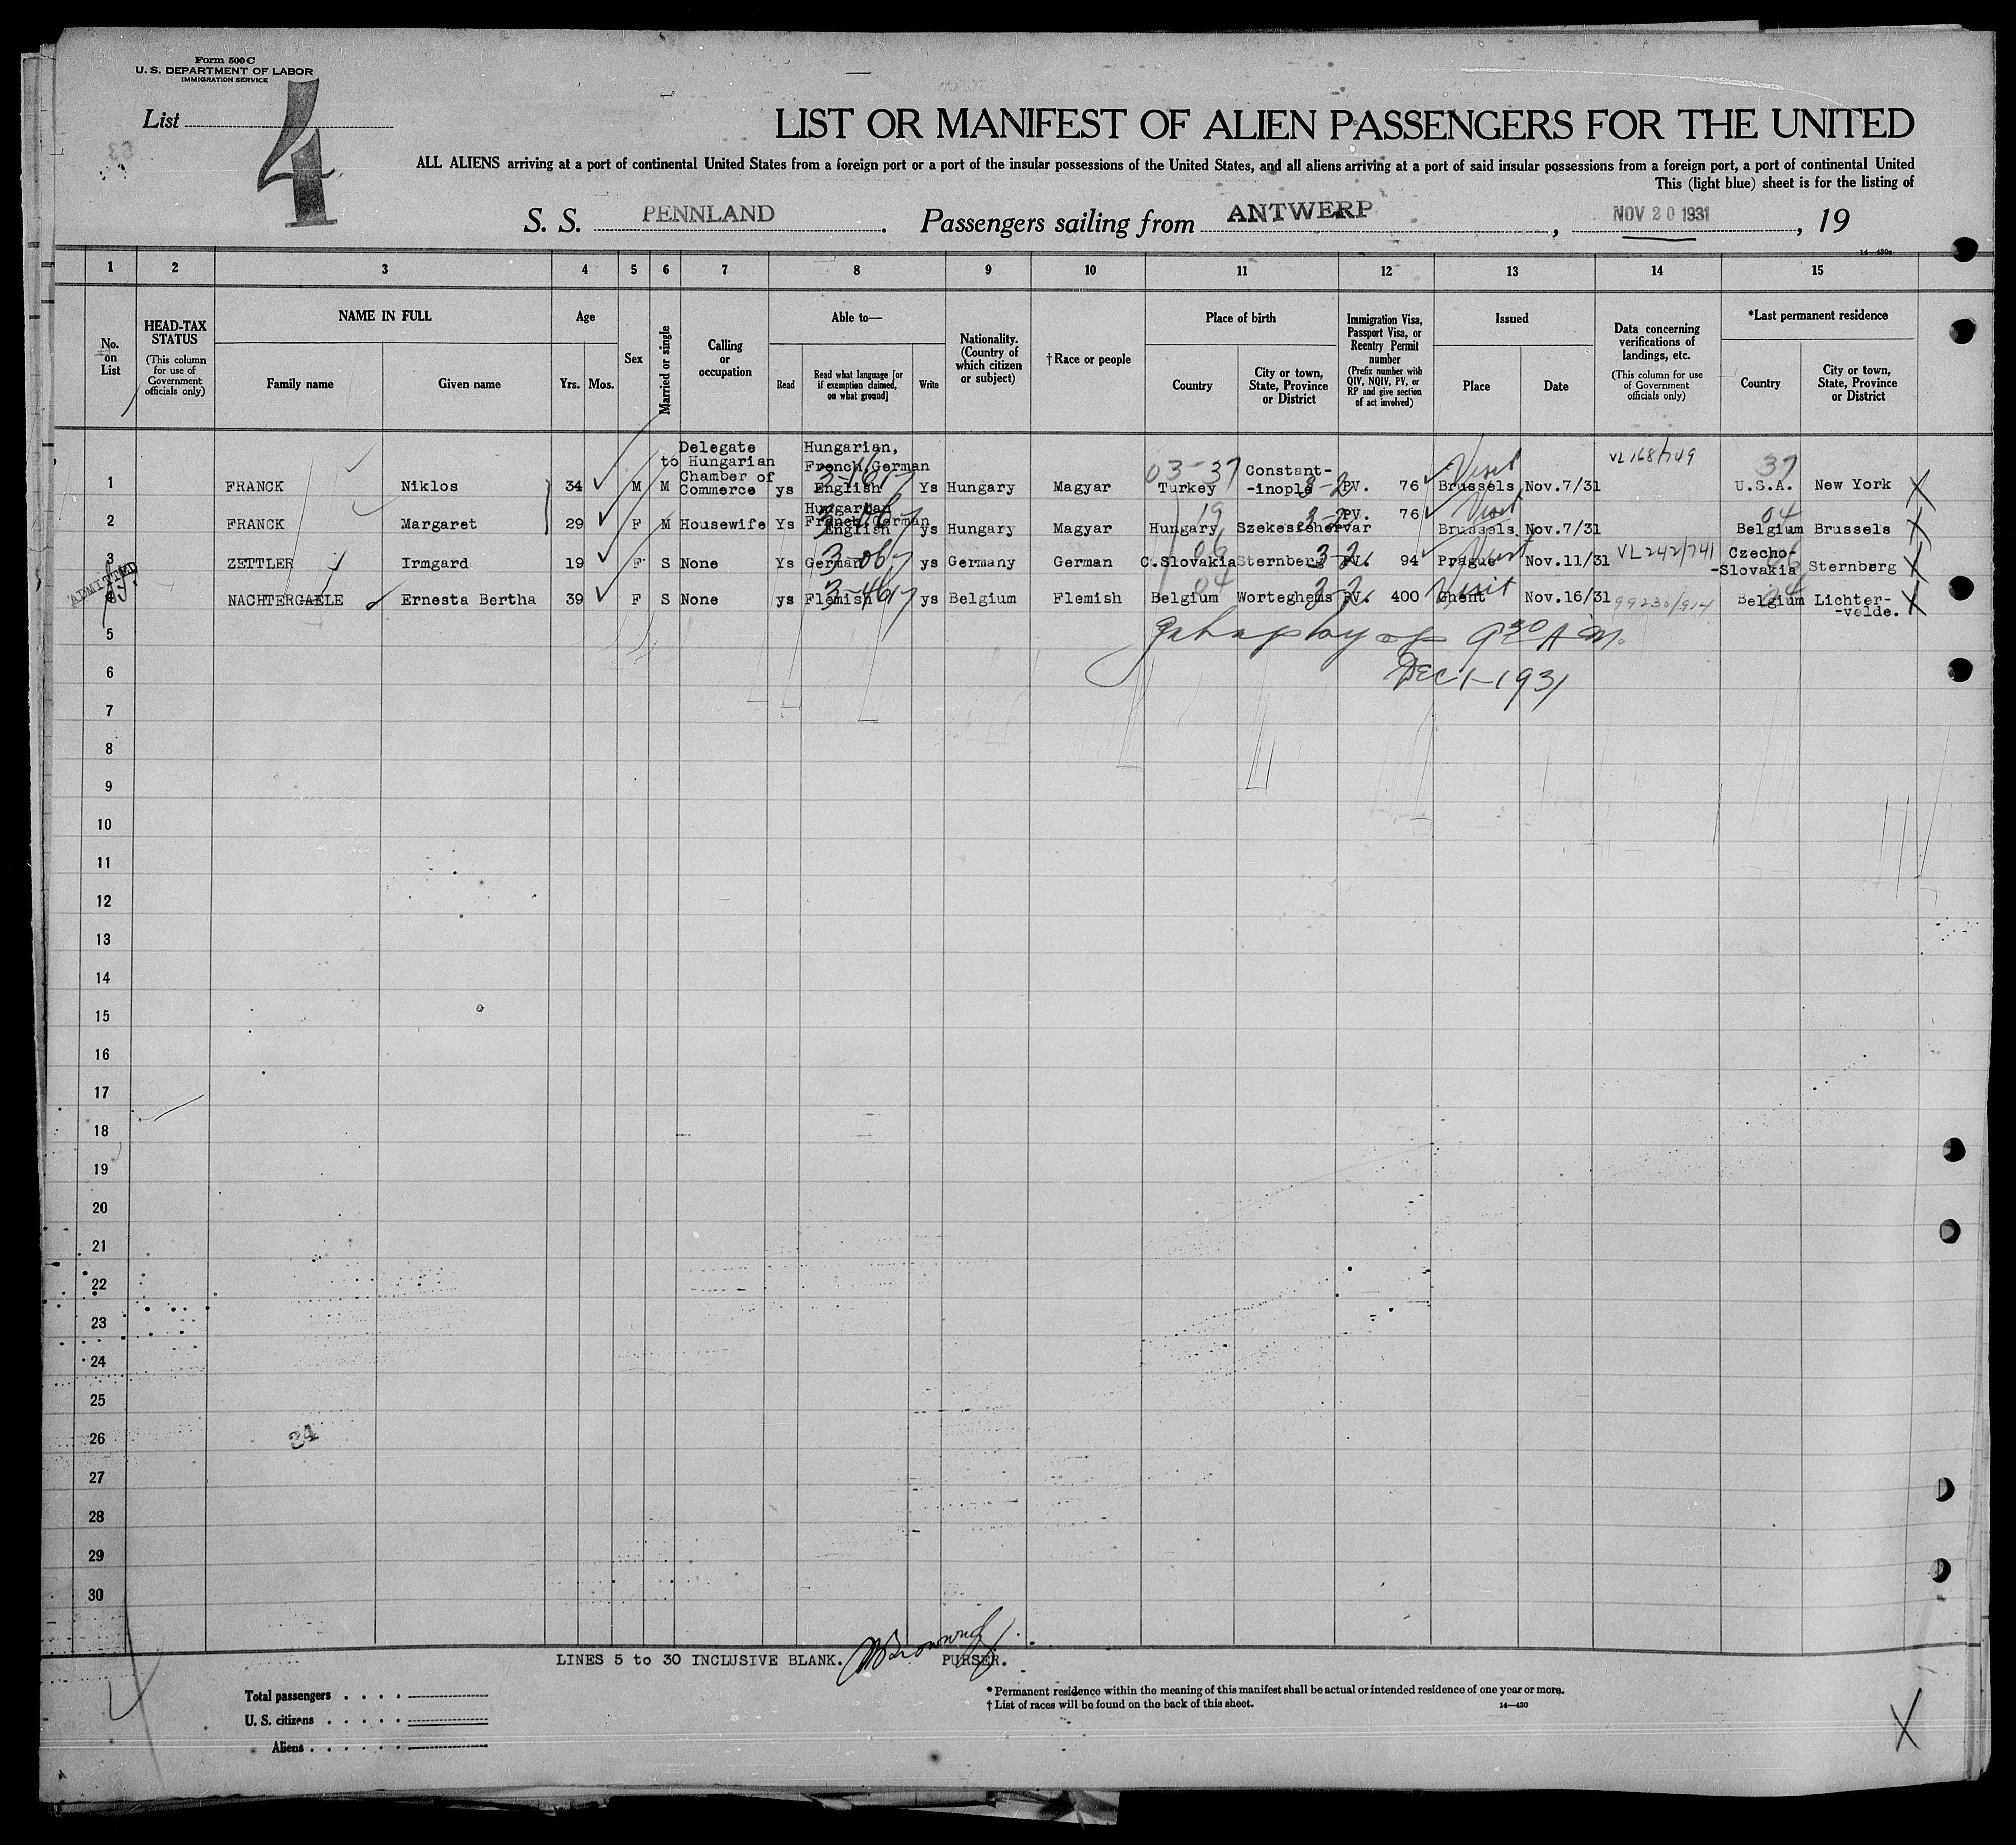 Form 500 C
U. S. DEPARTMENT OF LABOR
IMMIGRATION SERVICE
List 4
LIST OR MANIFEST OF ALIEN PASSENGERS FOR THE UNITED
ALL ALIENS arriving at a port of continental United States from a foreign port or a port of the insular possessions of the United States, and all aliens arriving at a port of said insular possessions from a foreign port, a port of continental United
This (light blue) sheet is for the listing of
S. S. PENNLAND. Passengers sailing from ANTWERP, NOV 20 1931, 19
14—430a
1 2 3 4 5 6 7 8 9 10 11 12 13 14 15
No. on List
HEAD-TAX STATUS (This column for use of Government officials only)
NAME IN FULL Family name Given name
Age Yrs. Mos.
Sex
Married or single
Calling or occupation
Able to— Read Read what language [or if exemption claimed, on what ground] Write
Nationality. (Country of which citizen or subject)
†Race or people
Place of birth Country City or town, State, Province or District
Immigration Visa, Passport Visa, or Reentry Permit number (Prefix number with QIV, NQIV, PV, or RP and give section of act involved)
Issued Place Date
Data concerning verifications of landings, etc. (This column for use of Government officials only)
*Last permanent residence Country City or town, State, Province or District
1 FRANCK Niklos 34 M M Delegate to Hungarian Chamber of Commerce ys Hungarian, French, German English 3-1617 Ys Hungary Magyar 03-37 Turkey Constant--inople 3-2 PV. 76 Visit Brussels Nov.7/31 VL168/749 37 U.S.A. New York X
2 FRANCK Margaret 29 F M Housewife Ys Hungarian French, German English ys Hungary Magyar 19 Hungary Szekesfehervar 3-2 PV. 76 Visit Brussels Nov.7/31 04 Belgium Brussels X
3 ZETTLER Irmgard 19 F S None Ys German 3-067 ys Germany German 06 C.Slovakia Sternberg 3-2 PV. 94 Visit Prague Nov.11/31 VL242/741 Czecho--Slovakia 06 Sternberg X
ADMITTED
NACHTERGAELE Ernesta Bertha 39 F S None ys Flemish 3-4617 ys Belgium Flemish 04 Belgium Worteghems 3-2 PV. 400 Visit Ghent Nov.16/31 99230/914 04 Belgium Lichter--velde. X
5 9 30 A M.
6 Dec 1-1931
7
8
9
10
11
12
13
14
15
16
17
18
19
20
21
22
23
24
25
26 34
27
28
29
30
LINES 5 to 30 INCLUSIVE BLANK. PURSER.
Total passengers
U. S. citizens
Aliens
* Permanent residence within the meaning of this manifest shall be actual or intended residence of one year or more.
† List of races will be found on the back of this sheet. 14—430
X